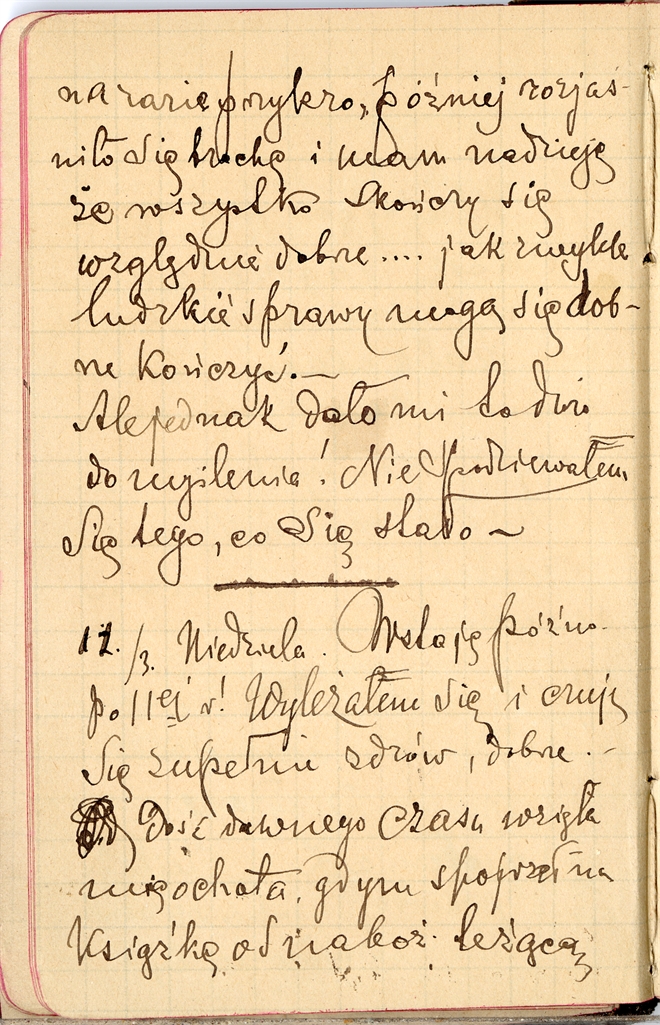 na razie przykro, później rozjaś-
niło się trochę i mam nadzieję
że wszystko skończy się
względnie dobrze .... jak zwykle
ludzkie sprawy mogą się dob-
rze kończyć. —
Ale jednak dało mi to dużo
do myślenia! Nie spodziewałem
się tego, co się stało —
12./3. Niedziela. Wstaję późno
po 11ej r! Wyleżałem się i czuję
się zupełnie zdrów, dobrze. —
Dość dawnego czasu wzięła
mię ochota, gdym spojrzał na
Książkę od naboż. leżącą,